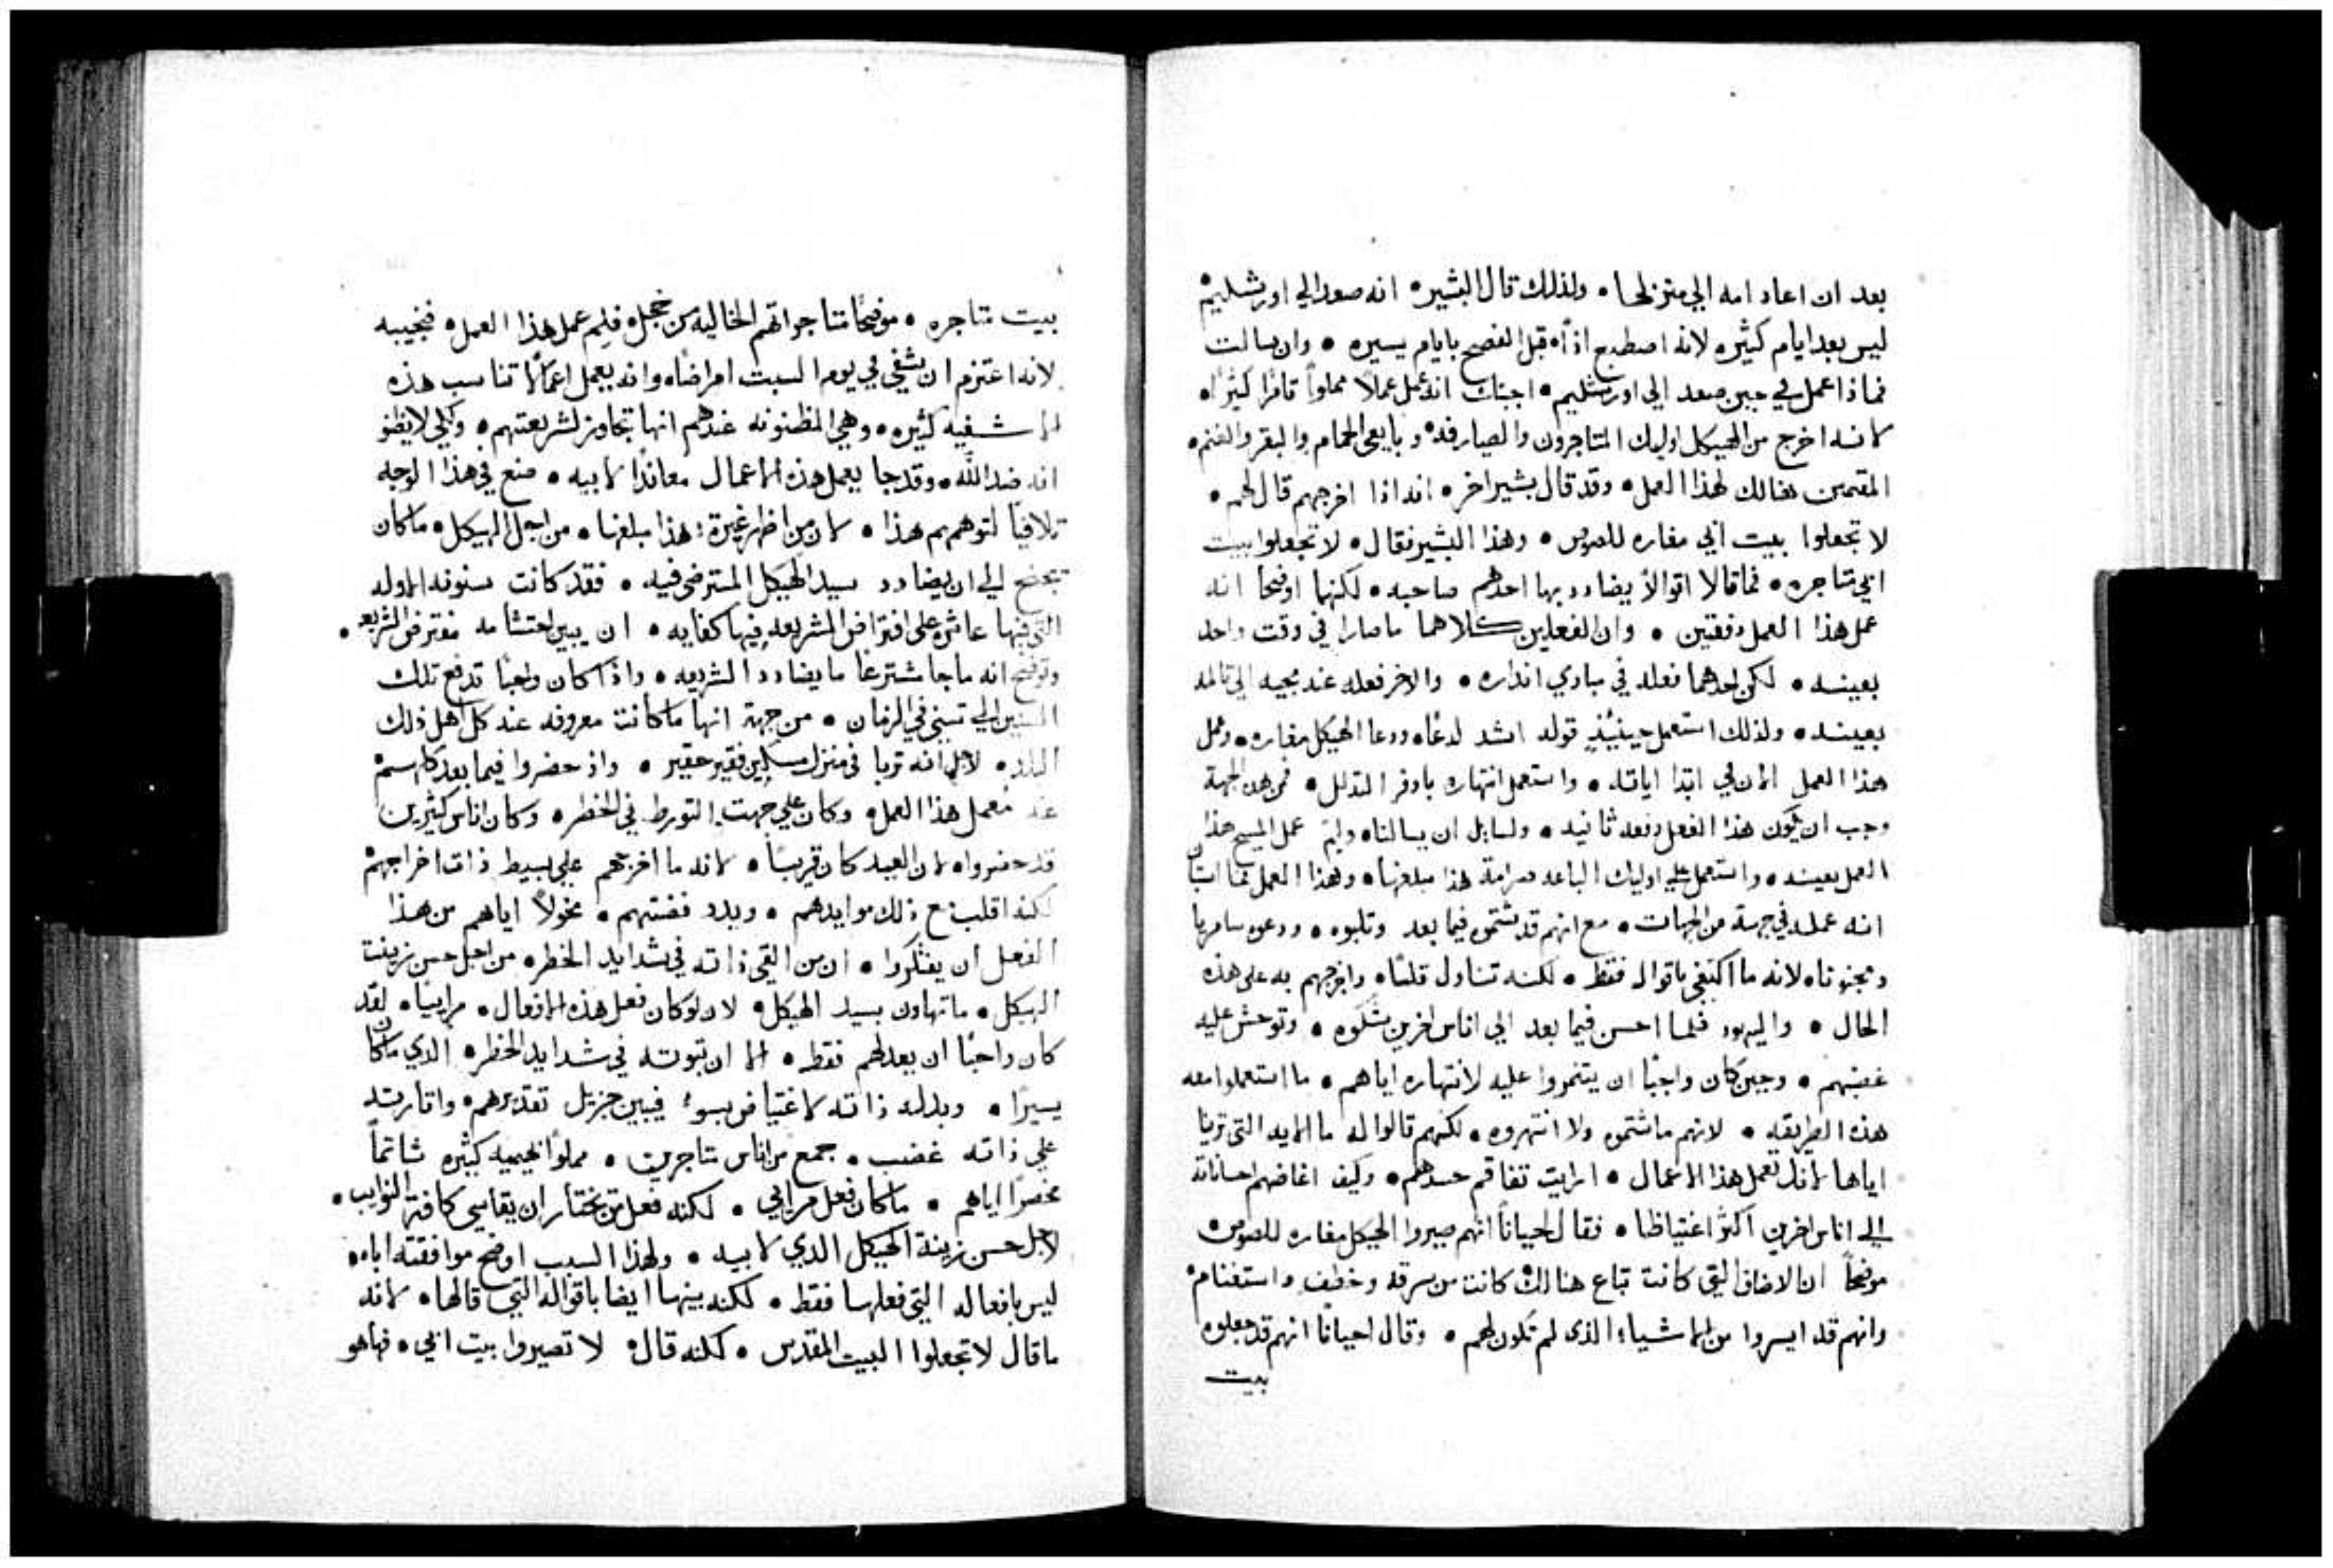 بعد ان اعاد امه الي منزلها • ولذلك قال البشير • انه صعد الي اورشليم
ليس بعد ايام كثيره لانه اصطبغ اذاً • قبل الفصح بايام يسيره • وان سالت
فماذا عمل في حين صعد الي اورشليم • اجبتك انه عمل عملاً مملواً كثيراً •
لانه اخرج من الهيكل اوليك المتاجرون والصيارفه • وبايعي الحمام والبقر والغنم •
المقيمين هنالك لهذا العمل • وقد قال بشير اخر • انه اذا اخرجهم قال لهم •
لا تجعلوا بيت ابي مغاره للصوص • وهذا البشير فقال • لا تجعلوا بيت
ابي متاجره • فما قالا اقوالاً يضادد بها احدهم صاحبه • لكنهما اوضحا انه
عمل هذا العمل دفعتين • وان الفعلين كلاهما ما صارا في وقت واحد
بعينه • لكن احدهما فعله في مبادي انذاره • والاخر فعله عند مجيه الي تالمه
بعينه • ولذلك استعمل حينيذٍ قوله اشد لذعاً • ودعا الهيكل مغاره • وعمل
هذا العمل الان في ابتدا اياته • واستعمل انتهاره باوفر التذلل • فمن هذه الجهة
وجب ان يكون هذا الفعل دفعه ثانيه • ولسايل ان يسالنا • ولِمَ عمل المسيح هذا
العمل بعينه • واستعمل علي اوليك الباعه صرامة هذا مبلغها • وهذا العمل فما استبان
انه عمله في جهة من الجهات • مع انهم قد شتموه فيما بعد وثلبوه • ودعوه سامريا
ومجنونا • لانه ما اكتفي باقواله فقط • لكنه تناول قلسًا • واخرجهم به علي هذه
الحال • واليهود فلما احسن فيما بعد الي اناس اخرين شكوه • وتوحش عليه
غضبهم • وحين كان واجبًا ان يتنمروا عليه لانتهاره اياهم • ما استعملوا معه
هذه الطريقه • لانهم ما شتموه ولا انتهروه • لكنهم قالوا له ما الايه التي ترينا
اياها لانك تعمل هذا الاعمال • ارايت تفاقم حسدهم • وكيف اغاضهم احساناته
الي اناس اخرين اكثر اغتياظا • فقال احياناً انهم صيروا الهيكل مغاره للصوص
موضحاً ان الاصناف التي كانت تباع هنالك كانت من سرقه وخطف واستغنام
وانهم قد ايسروا من الاشياء الذي لم تكون لهم • وقال احيانًا انهم قد جعلوه
بيت
بيت متاجره • موضحًا متاجراتهم الخاليه من خجل • فلِمَ عمل هذا العمل • فنجيبه
لانه اعتزم ان يشفي في يوم السبت امراضًا • وانه يعمل اعمالاً تناسب هذه
الاشفيه كثيره • وهي المظنونه عندهم انها تجاوز لشريعتهم • ولكي لا يظنو
انه ضد الله • وقد جا يعمل هذه الاعمال معاندًا لابيه • صنع في هذا الوجه
تلافيًا لتوهمهم هذا • لان من اظهر غيرة هذا مبلغها • من اجل الهيكل • ما كان
يجنح الي ان يضادد سيد الهيكل المسترضي فيه • فقد كانت سنونه الاوله
التي فيها عاش علي افتراض الشريعه فيها كفايه • ان يبين احتشامه مفترض الشريعه •
وتوضح انه ما جا مشترعًا ما يضادد الشريعه • واذا كان واجبًا تدفع تلك
السنين الي تنسي في الزمان • من جهة انها ما كانت معروفه عند كل اهل ذلك
البلد • لاجل انه تربا في منزل مسكين فقير حقير • واذ حضروا فيما بعد كلهم
عند معمل هذا العمل • وكان علي جهت التورط في الخطر • وكان اناس كثيرين
قد حضروا • لان العيد كان قريبًا • لانه ما اخرجهم علي بسيط ذات اخراجهم
لكنه اقلب مع ذلك موايدهم • وبدد فضتهم • مخولاً اياهم من هذا
الفعل ان يفتكروا • ان من القي ذاته في شدايد الخطر • من اجل حسن زينت
الهيكل • ما تهاون بسيد الهيكل • لان لو كان فعل هذه الافعال • مراييا • لقد
كان واجبًا ان يعدلهم فقط • الا ان ثبوته في شدايد الخطر • الذي ما كان
يسيرًا • وبذله ذاته لاغتياض بسوء فيبين جزيل تقديرهم • واثارته
علي ذاته غضب • جمع من اناس متاجرين • مملواً بهيميه كثيره شاتماً
مخصرًا اياهم • ما كان فعل مرايي • لكنه فعل من يختار ان يقاسي كافة النوايب •
لاجل حسن زينة الهيكل الذي لابيه • ولهذا السبب اوضح موافقته اباه •
ليس بافعاله التي فعلها فقط • لكنه بينها ايضا باقواله التي قالها • لانه
ما قال لا تجعلوا البيت المقدس • لكنه قال • لا تصيروا بيت ابي • فها هو